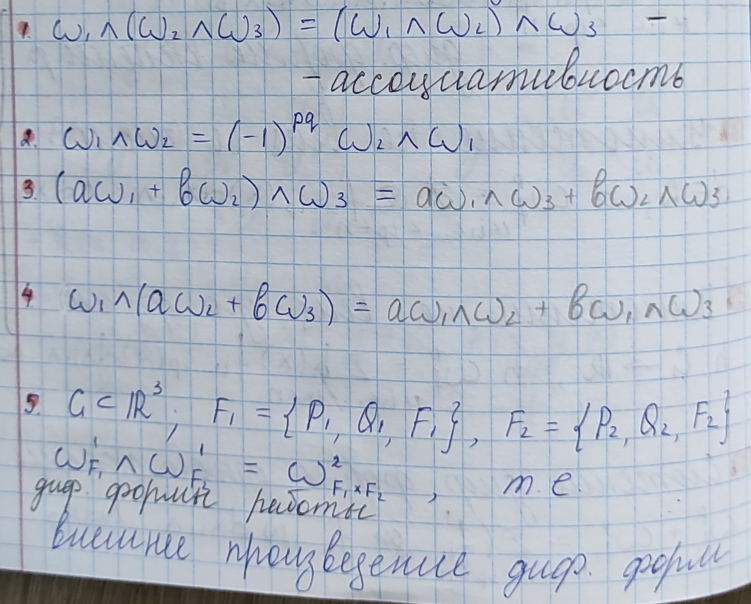 1. ω₁∧(ω₂∧ω₃) = (ω₁∧ω₂)∧ω₃ –
– ассоциативность
2. ω₁∧ω₂ = (-1)^{pq} ω₂∧ω₁
3. (aω₁ + bω₂)∧ω₃ = aω₁∧ω₃ + bω₂∧ω₃
4. ω₁∧(aω₂ + bω₃) = aω₁∧ω₂ + bω₁∧ω₃
5. G⊂ℝ³, F₁ = {P₁, Q₁, F₁}, F₂ = {P₂, Q₂, F₂}
ω¹_{F₁}∧ω¹_{F₂} = ω²_{F₁×F₂}, т.е.
диф. формы работы
внешнее произведение диф. форм